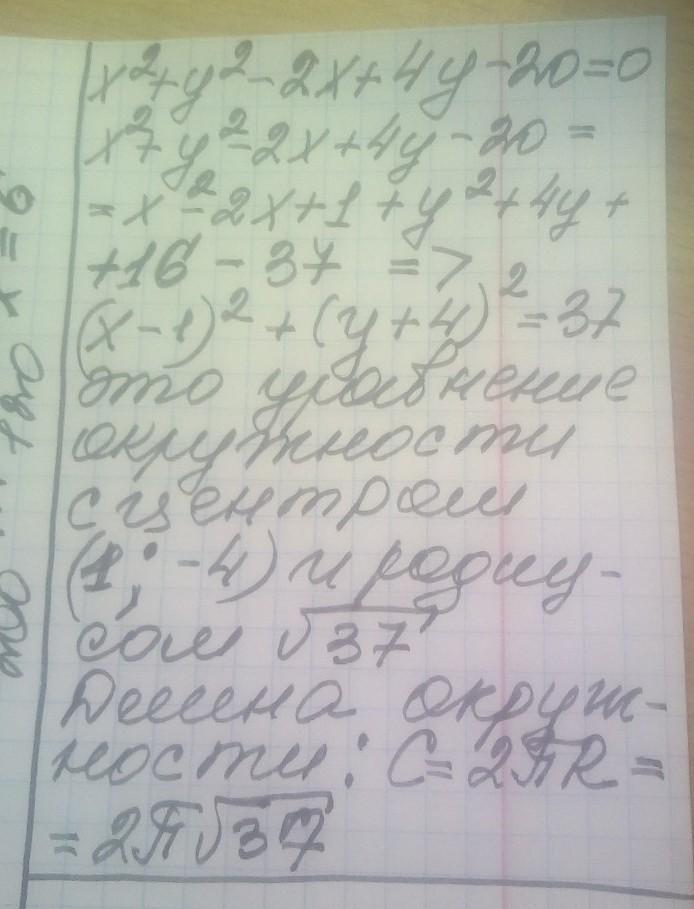 x²+y²-2x+4y-20=0
x²+y²-2x+4y-20=
=x²-2x+1+y²+4y+
+16-37 =>
(x-1)²+(y+4)²=37
это уравнение
окружности
с центром
(1; -4) и радиу-
сом √37
Длина окруж-
ности: C=2πR=
=2π√37